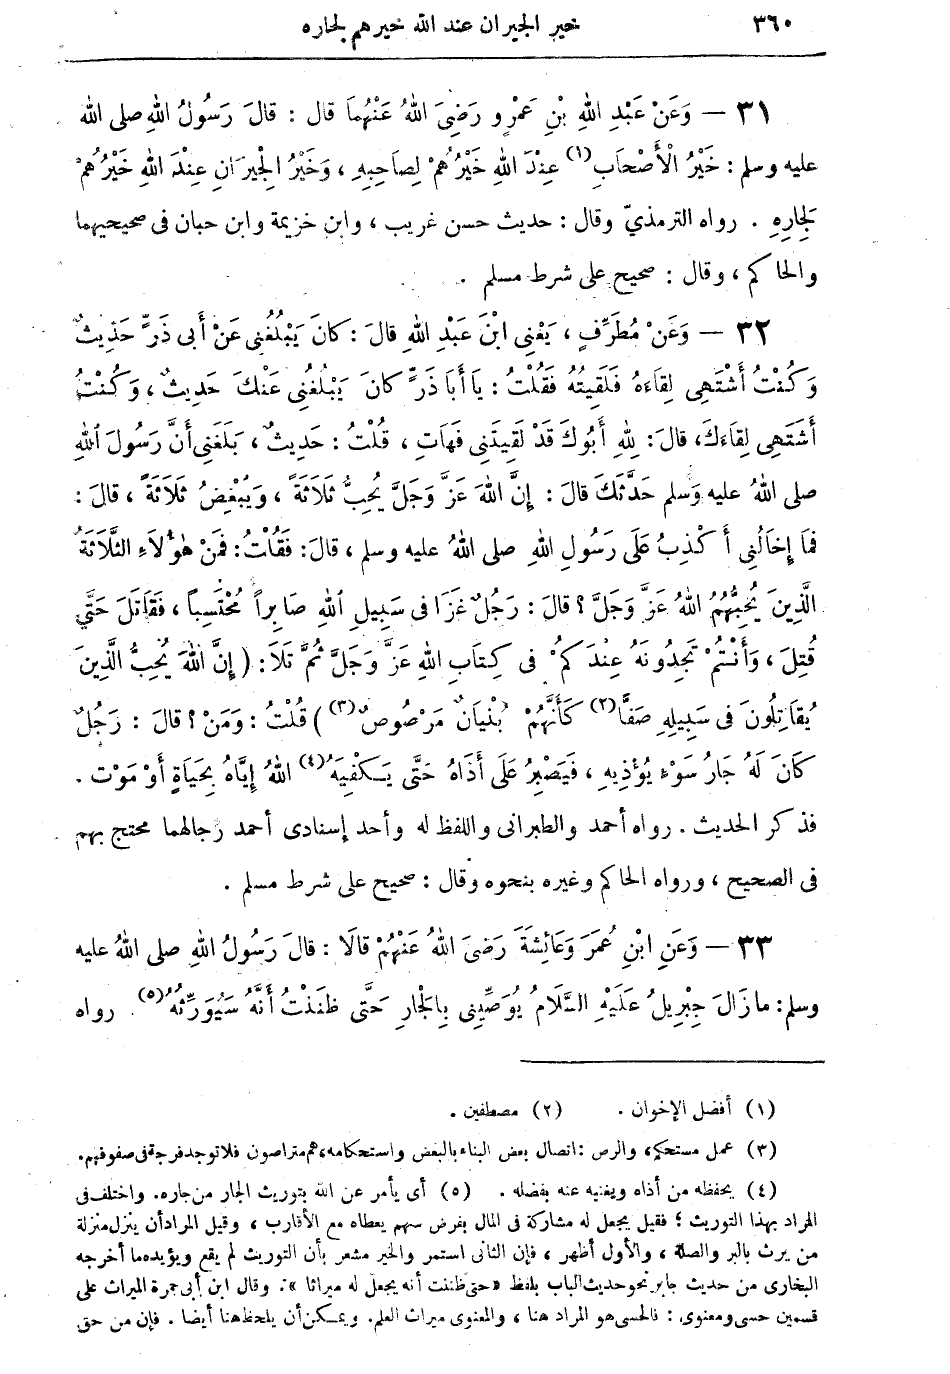 ٣٦٠ خير الجيران عند الله خيرهم لجاره
٣١ — وَعَنْ عَبْدِ اللهِ بْنِ عَمْرٍو رَضِىَ اللهُ عَنْهُمَا قال : قالَ رَسُولُ اللهِ صلى الله
عليه وسلم : خَيْرُ الْأَصْحَابِ (١) عِنْدَ اللهِ خَيْرُهُمْ لِصَاحِبِهِ ، وَخَيْرُ الْجِيرَانِ عِنْدَ اللهِ خَيْرُهُمْ
لِجَارِهِ . رواه الترمذيّ وقال : حديث حسن غريب ، وابن خزيمة وابن حبان فى صحيحيهما
والحاكم ، وقال : صحيح على شرط مسلم .
٣٢ — وَعَنْ مُطَرِّفٍ ، يَعْنِى ابْنَ عَبْدِ اللهِ قالَ : كانَ يَبْلُغُنِى عَنْ أَبى ذَرٍّ حَدِيثٌ
وَكُنْتُ أَشْتَهِى لِقَاءَهُ فَلَقِيتُهُ فَقُلْتُ : يَا أَبَا ذَرٍّ كانَ يَبْلُغُنِى عَنْكَ حَدِيثٌ ، وَكُنْتُ
أَشْتَهِى لِقَاءَكَ، قالَ: لِلهِ أَبُوكَ قَدْ لَقِيتَنِى فَهَاتِ ، قُلْتُ : حَدِيثٌ ، بَلَغَنِى أَنَّ رَسُولَ اللهِ
صلى اللهُ عليه وَسلم حَدَّثَكَ قالَ : إِنَّ اللهَ عَزَّ وَجَلَّ يُحِبُّ ثَلاَثَةً ، وَيُبْغِضُ ثَلاَثَةً ، قالَ :
فَمَا إِخَالُنِى أَكْذِبُ عَلَى رَسُولِ اللهِ صلى اللهُ عليه وسلم ، قالَ: فَقُلْتُ: فَمَنْ هٰؤُلاَءِ الثَّلاَثَةُ
الَّذِينَ يُحِبُّهُمُ اللهُ عَزَّ وَجَلَّ ؟ قالَ : رَجُلٌ غَزَا فى سَبِيلِ اللهِ صَابِراً مُحْتَسِباً ، فَقَاتَلَ حَتَّى
قُتِلَ ، وَأَنْتُمْ تَجِدُونَهُ عِنْدَكُمْ فى كِتَابِ اللهِ عَزَّ وَجَلَّ ثُمَّ تَلاَ : ( إِنَّ اللهَ يُحِبُّ الَّذِينَ
يُقَاتِلُونَ فى سَبِيلِهِ صَفًّا (٢) كَأَنَّهُمْ بُنْيَانٌ مَرْصُوصٌ (٣) ) قُلْتُ : وَمَنْ ؟ قالَ : رَجُلٌ
كانَ لَهُ جَارُ سَوْءٍ يُؤْذِيهِ ، فَيَصْبِرُ عَلَى أَذَاهُ حَتَّى يَكْفِيَهُ (٤) اللهُ إِيَّاهُ بِحَيَاةٍ أَوْ مَوْتٍ .
فذكر الحديث . رواه أحمد والطبرانى واللفظ له وأحد إسنادى أحمد رجالهما محتج بهم
فى الصحيح ، ورواه الحاكم وغيره بنحوه وقال : صحيح على شرط مسلم .
٣٣ — وَعَنِ ابْنِ عُمَرَ وَعَائِشَةَ رَضِىَ اللهُ عَنْهُمْ قالَا : قالَ رَسُولُ اللهِ صلى اللهُ عليه
وسلم: ما زَالَ جِبْرِيلُ عَلَيْهِ السَّلاَمُ يُوصِّينِى بِالْجَارِ حَتَّى ظَنَنْتُ أَنَّهُ سَيُوَرِّثُهُ (٥) . رواه
(١) أفضل الإخوان . (٢) مصطفين .
(٣) عمل مستحكم، والرص : اتصال بعض البناء بالبعض واستحكامه، هم متراصون فلا توجد فرجة فى صفوفهم.
(٤) يحفظه من أذاه ويغنيه عنه بفضله . (٥) أى يأمر عن الله بتوريث الجار من جاره. واختلف فى
المراد بهذا التوريث ؛ فقيل يجعل له مشاركة فى المال بفرض سهم يعطاه مع الأقارب ، وقيل المراد أن ينزل منزلة
من يرث بالبر والصلة ، والأول أظهر ، فإن الثانى استمر والخبر مشعر بأن التوريث لم يقع ويؤيده ما أخرجه
البخارى من حديث جابر نحو حديث الباب بلفظ «حتى ظننت أنه يجعل له ميراثا ». وقال ابن أبى جمرة الميراث على
قسمين حسى ومعنوى : فالحسى هو المراد هنا ، والمعنوى ميراث العلم. ويمكن أن يلحظ هنا أيضا . فإن من حق